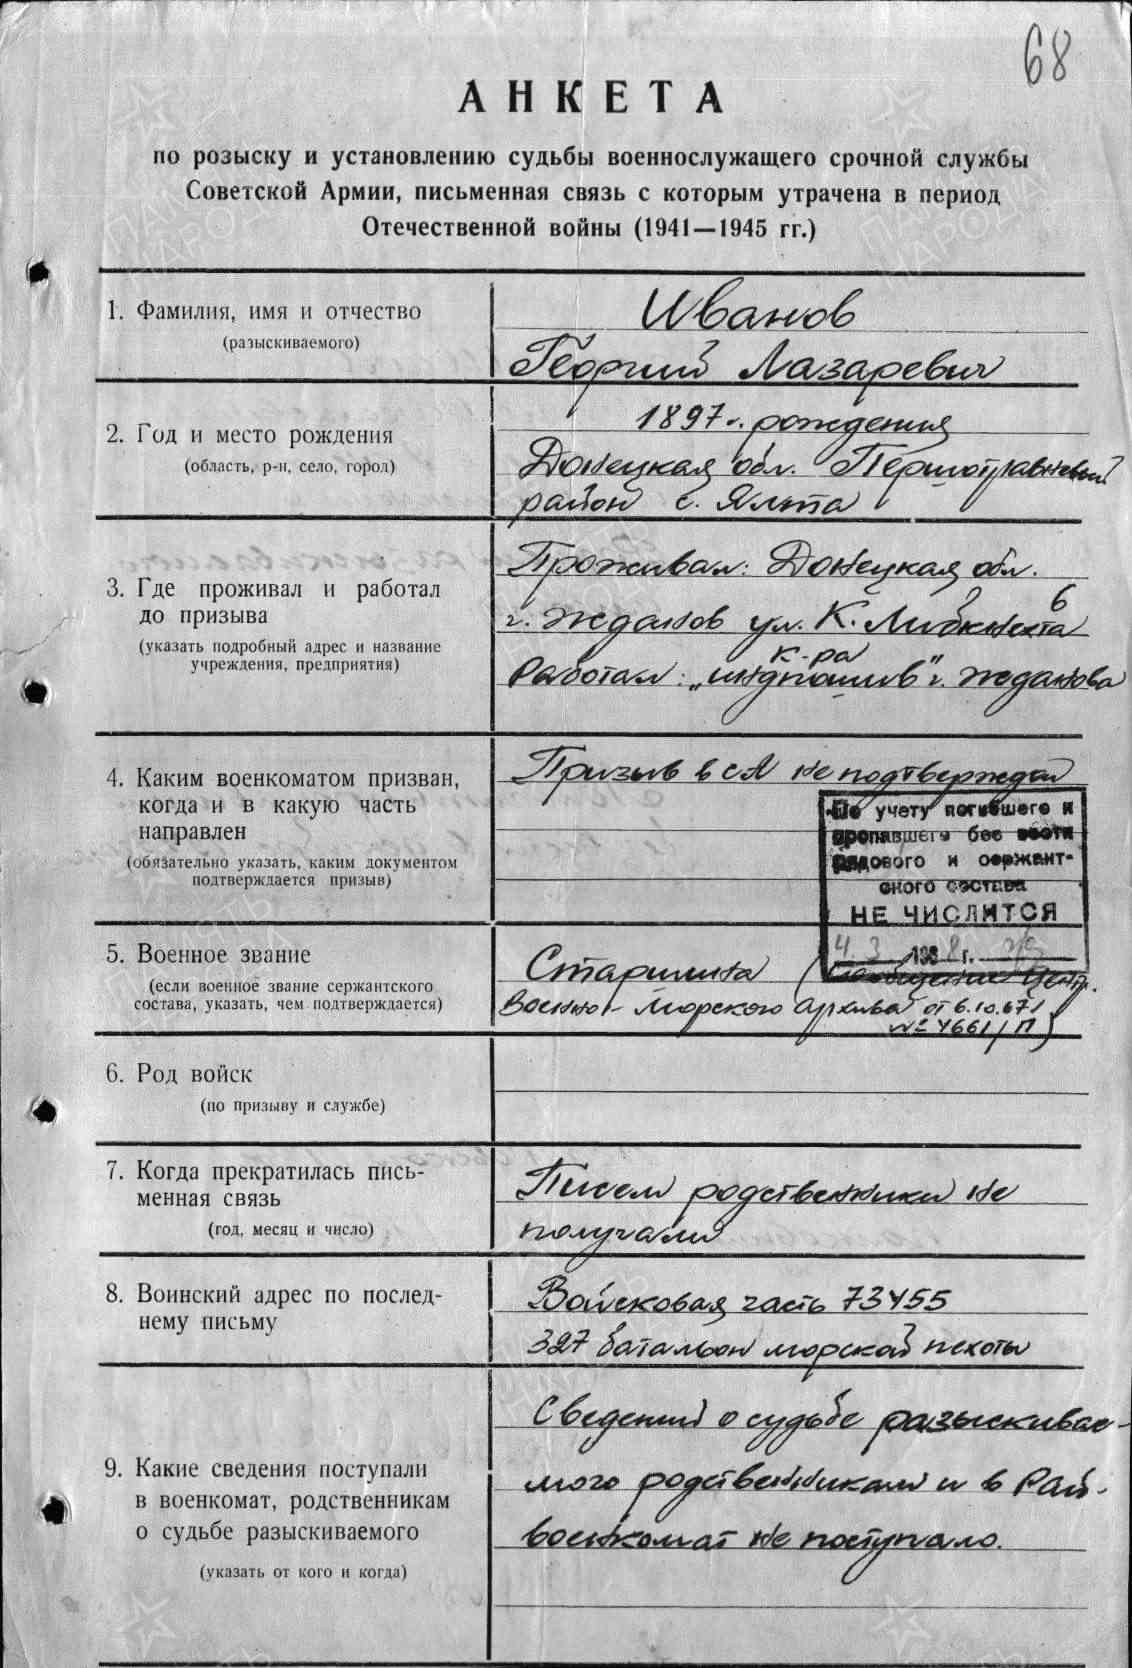 68
АНКЕТА
по розыску и установлению судьбы военнослужащего срочной службы
Советской Армии, письменная связь с которым утрачена в период
Отечественной войны (1941—1945 гг.)
1. Фамилия, имя и отчество
(разыскиваемого)
Иванов
Георгий Лазаревич
2. Год и место рождения
(область, р-н, село, город)
1897 г. рождения
Донецкая обл. Першотравневый
район с. Ялта
3. Где проживал и работал
до призыва
(указать подробный адрес и название
учреждения, предприятия)
Проживал: Донецкая обл.
г. Жданов ул. К. Либкнехта 6
к-ра
Работал: „индпошив" г. Жданова
4. Каким военкоматом призван,
когда и в какую часть
направлен
(обязательно указать, каким документом
подтверждается призыв)
Призыв в СА не подтвержден
По учету погибшего и
пропавшего без вести
рядового и сержант-
ского состава
НЕ ЧИСЛИТСЯ
4.3 1968 г.
5. Военное звание
(если военное звание сержантского
состава, указать, чем подтверждается)
Старшина (Сообщение Центр.
Военно-Морского Архива от 6.10.67 г
№ 4661/П)
6. Род войск
(по призыву и службе)
7. Когда прекратилась пись-
менная связь
(год, месяц и число)
Писем родственники не
получали
8. Воинский адрес по послед-
нему письму
Войсковая часть 73455
327 батальон морской пехоты
9. Какие сведения поступали
в военкомат, родственникам
о судьбе разыскиваемого
(указать от кого и когда)
Сведений о судьбе разыскивае-
мого родственникам и в Рай-
военкомат не поступало.